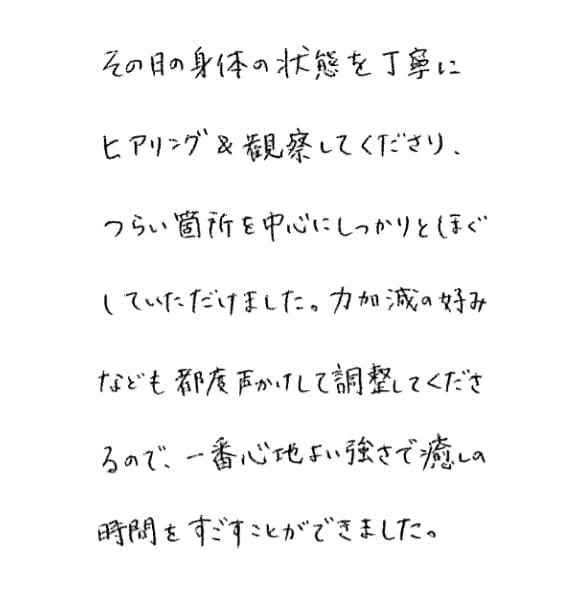 その日の身体の状態を丁寧に
ヒアリング&観察してくださり、
つらい箇所を中心にしっかりとほぐ
していただけました。力加減の好み
なども都度声かけして調整してくださ
るので、一番心地よい強さで癒しの
時間をすごすことができました。